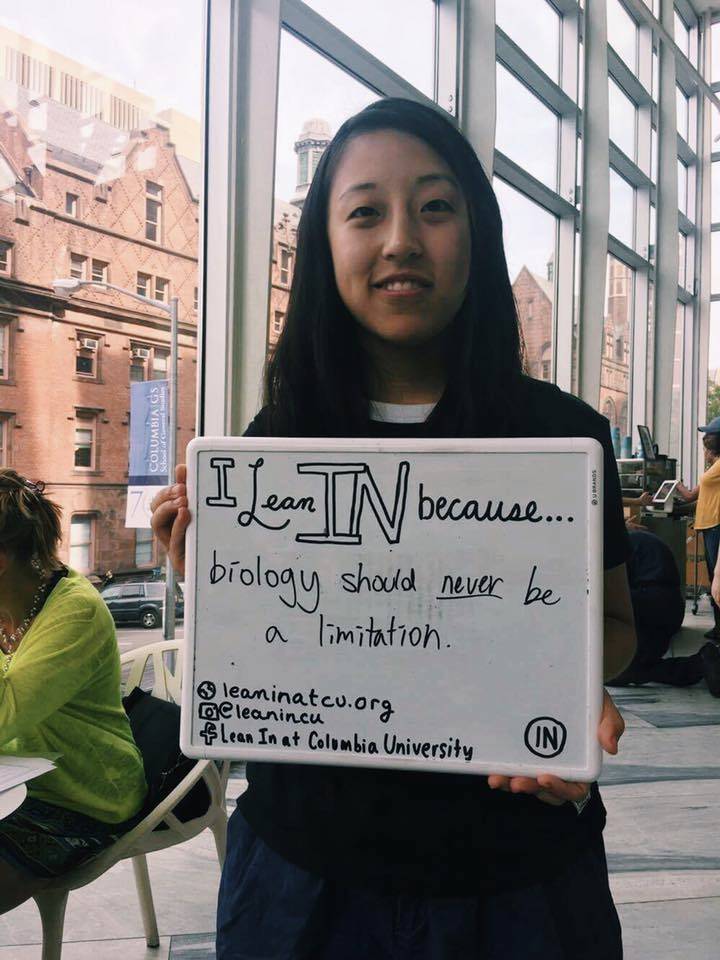 COLUMBIA | GS
School of General Studies
I Lean IN because...
biology should never be
a limitation.
leaninatcu.org
@leanincu
f Lean In at Columbia University
IN
U BRANDS